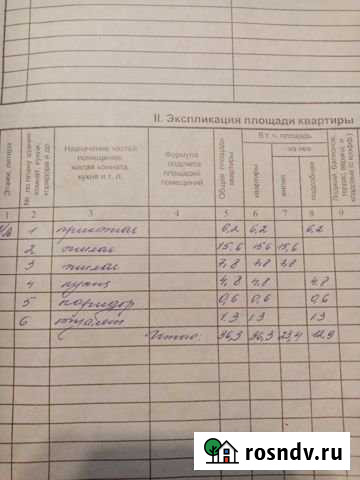 II. Экспликация площади квартиры
Этажи, литера
№ по плану здания комнат, кухни, коридора и др.
Назначение частей помещения: жилая комната, кухня и т. п.
Формула подсчета площадей помещений
Общая площадь квартиры
В т. ч. площадь
из нее
квартиры
жилая
подсобная
Лоджий, балконов, террас, веранд и кладовых (с коэфф.)
1 2 3 4 5 6 7 8 9
1 прихожая 6,2 6,2 6,2
2 жилая 15,6 15,6 15,6
3 жилая 7,8 7,8 7,8
4 кухня 4,8 4,8 4,8
5 коридор 0,6 0,6 0,6
6 туалет 1,3 1,3 1,3
Итого: 36,3 36,3 23,4 12,9
rosndv.ru